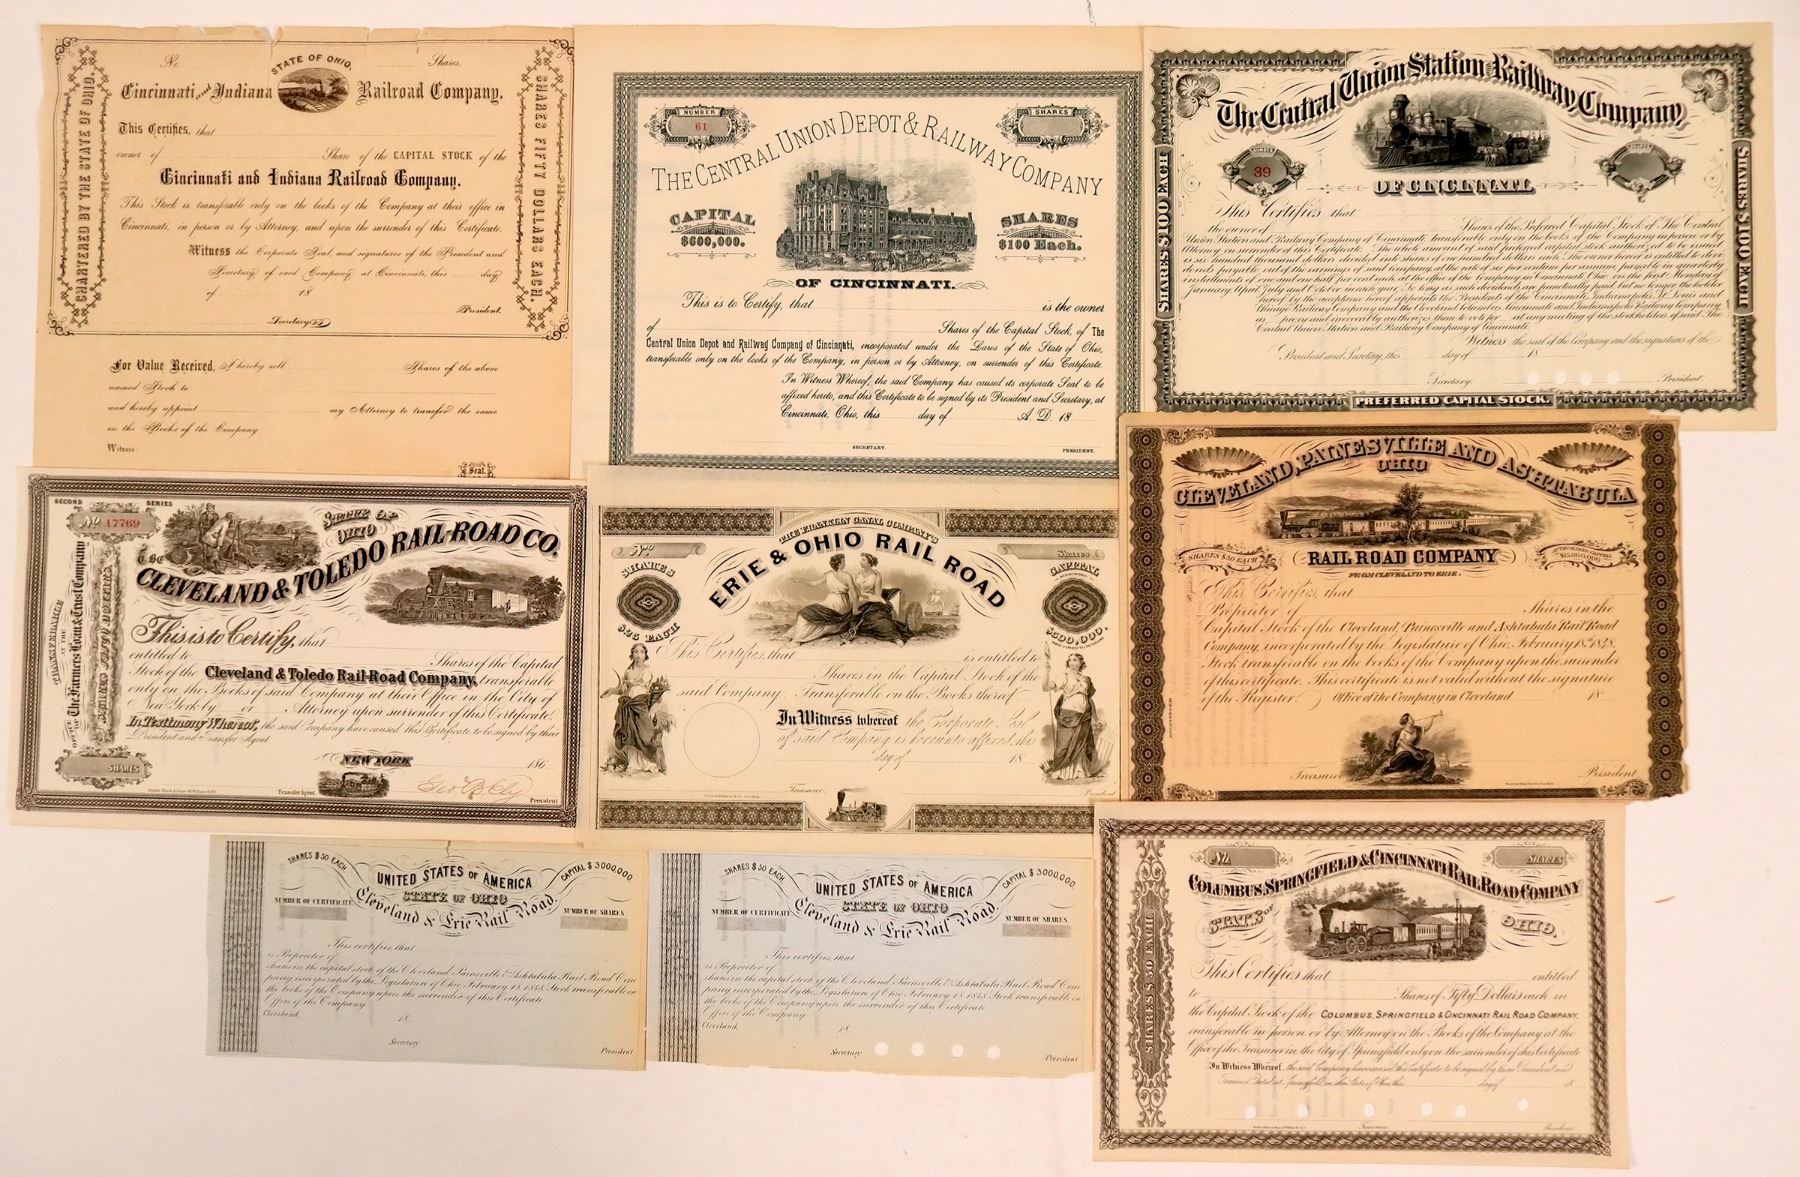 No. STATE OF OHIO. Shares.
Cincinnati and Indiana Railroad Company.
CHARTERED BY THE STATE OF OHIO.
SHARES FIFTY DOLLARS EACH.
This Certifies, that
owner of Share of the CAPITAL STOCK of the
Cincinnati and Indiana Railroad Company.
This Stock is transferable only on the books of the Company at their office in
Cincinnati, in person or by Attorney, and upon the surrender of this Certificate.
Witness the Corporate Seal, and signatures of the President and
Secretary of said Company at Cincinnati, this day
of 18
President.
Secretary
For Value Received, I hereby sell Shares of the above
named Stock to
and hereby appoint my Attorney to transfer the same
on the Books of the Company
Witness:
Seal.
NUMBER SHARES
61
THE CENTRAL UNION DEPOT & RAILWAY COMPANY
CAPITAL $600,000.
SHARES $100 Each.
OF CINCINNATI.
This is to Certify, that is the owner
of Shares of the Capital Stock, of The
Central Union Depot and Railway Company of Cincinnati, incorporated under the Laws of the State of Ohio,
transferable only on the books of the Company, in person or by Attorney, on surrender of this Certificate.
In Witness Whereof, the said Company has caused its corporate Seal to be
affixed hereto, and this Certificate to be signed by its President and Secretary, at
Cincinnati, Ohio, this day of A. D. 18
SECRETARY. PRESIDENT.
The Central Union Station Railway Company
NUMBER SHARES
39
OF CINCINNATI.
SHARES $100 EACH
SHARES $100 EACH
This Certifies that
the owner of Shares of the Preferred Capital Stock of The Central
Union Station and Railway Company of Cincinnati, transferable only on the books of the Company in person or by
Attorney on surrender of this Certificate. The whole amount of said preferred capital stock authorized to be issued
is six hundred thousand dollars divided into shares of one hundred dollars each. The owner hereof is entitled to divi-
dends payable out of the earnings of said Company at the rate of six per centum per annum payable in quarterly
installments of one and one half per cent each at the office of the Company in Cincinnati Ohio on the first Monday of
January April July and October in each year. So long as such dividends are punctually paid but no longer the holder
hereof by the acceptance hereof appoints the Presidents of the Cincinnati, Indianapolis, St. Louis and
Chicago Railway Company and the Cleveland Columbus Cincinnati and Indianapolis Railway Company
proxy and irrevocably authorizes them to vote for at any meeting of the stockholders of said The
Central Union Station and Railway Company of Cincinnati.
Witness the seal of the Company and the signatures of the
President and Secretary, this day of 18
Secretary. President.
PREFERRED CAPITAL STOCK.
SECOND SERIES
No 17769
STATE OF OHIO
CLEVELAND & TOLEDO RAIL-ROAD CO.
TRANSFERABLE AT THE
OFFICE OF The Farmers Loan & Trust Company
SHARES FIFTY DOLLARS
This is to Certify, that
entitled to Shares of the Capital
Stock of the Cleveland & Toledo Rail-Road Company, transferable
only on the Books of said Company at their Office in the City of
New York by or Attorney upon surrender of this Certificate.
In Testimony Whereof, the said Company have caused this Certificate to be signed by their
President and Transfer Agent.
NEW YORK 186
SHARES
Transfer Agent. President
THE FRANKLIN CANAL COMPANY'S
ERIE & OHIO RAIL ROAD
No. Shares
SHARES $25 EACH
CAPITAL $500,000.
This Certifies, that is entitled to
Shares in the Capital Stock of the
said Company, Transferable on the Books thereof
In Witness whereof the Corporate Seal
of said Company is hereunto affixed, this
day of 18
Treasurer. President
CLEVELAND, PAINESVILLE AND ASHTABULA
OHIO
RAIL ROAD COMPANY
FROM CLEVELAND TO ERIE.
SHARES $50 EACH
AUTHORIZED CAPITAL
This Certifies, that
Proprietor of Shares in the
Capital Stock of the Cleveland, Painesville and Ashtabula Rail Road
Company, incorporated by the Legislature of Ohio, February 18th 1848.
Stock transferable on the books of the Company upon the surrender
of this certificate. This certificate is not valid without the signature
of the Register. Office of the Company in Cleveland 18
Treasurer President
SHARES $50 EACH CAPITAL $3000,000
UNITED STATES OF AMERICA
STATE OF OHIO
NUMBER OF CERTIFICATE NUMBER OF SHARES
Cleveland & Erie Rail Road.
This certifies that
is Proprietor of
shares in the capital stock of the Cleveland Painesville & Ashtabula Rail Road Com
pany incorporated by the Legislature of Ohio February 18 1848. Stock transferable on
the books of the Company upon the surrender of this Certificate
Office of the Company
Cleveland, 18
Secretary President
SHARES $50 EACH CAPITAL $3000,000
UNITED STATES OF AMERICA
STATE OF OHIO
NUMBER OF CERTIFICATE NUMBER OF SHARES
Cleveland & Erie Rail Road.
This certifies that
is Proprietor of
shares in the capital stock of the Cleveland Painesville & Ashtabula Rail Road Com
pany incorporated by the Legislature of Ohio February 18 1848. Stock transferable on
the books of the Company upon the surrender of this Certificate
Office of the Company
Cleveland, 18
Secretary President
No. SHARES
COLUMBUS, SPRINGFIELD & CINCINNATI RAIL ROAD COMPANY
STATE OF OHIO.
SHARES $50 EACH
This Certifies that entitled
to Shares of Fifty Dollars each on
the Capital Stock of the COLUMBUS, SPRINGFIELD & CINCINNATI RAIL ROAD COMPANY,
transferable in person or by Attorney on the Books of the Company at the
Office of the Treasurer in the City of Springfield only on the surrender of this Certificate
In Witness Whereof, the said Company have caused this certificate to be signed by their President and
Treasurer Dated at Springfield in the State of Ohio, this day of 18
President